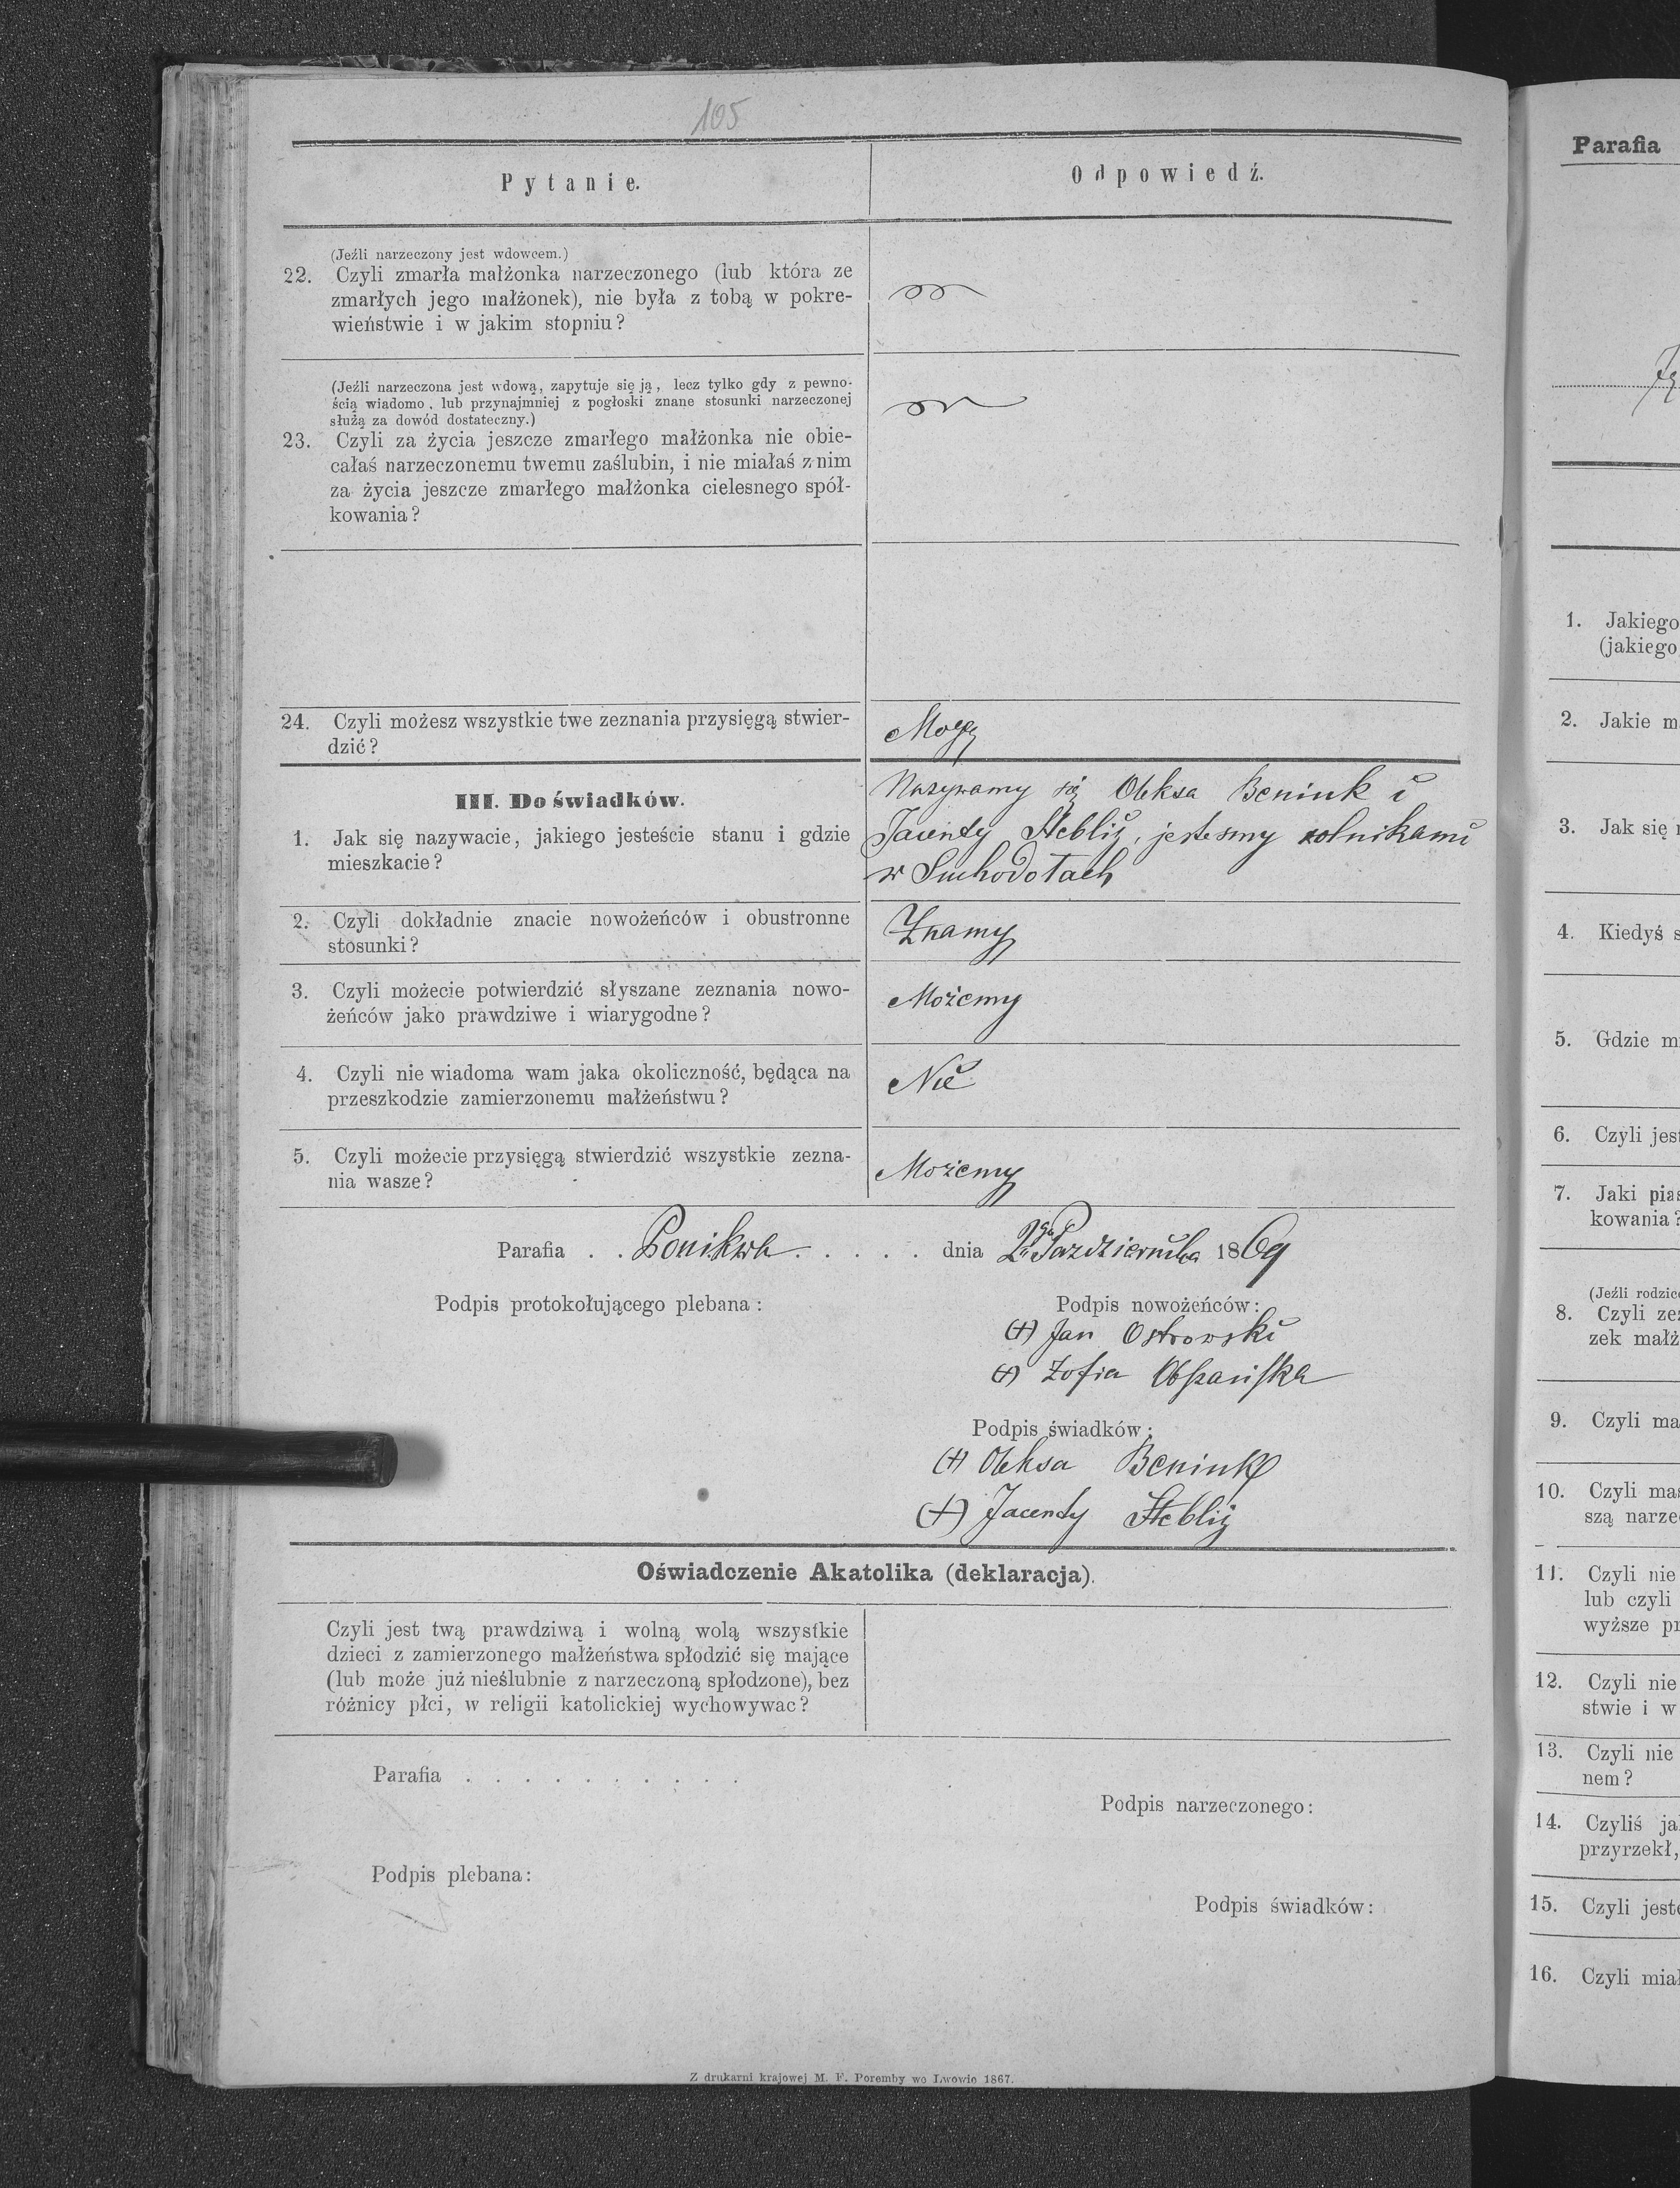 105
Pytanie.
Odpowiedź.
(Jeźli narzeczony jest wdowcem.)
22. Czyli zmarła małżonka narzeczonego (lub która ze
zmarłych jego małżonek), nie była z tobą w pokre-
wieństwie i w jakim stopniu?
(Jeźli narzeczona jest wdową, zapytuje się ją, lecz tylko gdy z pewno-
ścią wiadomo, lub przynajmniej z pogłoski znane stosunki narzeczonej
służą za dowód dostateczny.)
23. Czyli za życia jeszcze zmarłego małżonka nie obie-
całaś narzeczonemu twemu zaślubin, i nie miałaś z nim
za życia jeszcze zmarłego małżonka cielesnego spół-
kowania?
24. Czyli możesz wszystkie twe zeznania przysięgą stwier-
dzić?
Mogę
III. Do świadków.
1. Jak się nazywacie, jakiego jesteście stanu i gdzie
mieszkacie?
Nazywamy się Oleksa Beniuk i
Jacenty Stebliż, jestesmy rolnikami
w Suchodołach
2. Czyli dokładnie znacie nowożeńców i obustronne
stosunki?
Znamy
3. Czyli możecie potwierdzić słyszane zeznania nowo-
żeńców jako prawdziwe i wiarygodne?
Możemy
4. Czyli nie wiadoma wam jaka okoliczność, będąca na
przeszkodzie zamierzonemu małżeństwu?
Nie
5. Czyli możecie przysięgą stwierdzić wszystkie zezna-
nia wasze?
Możemy
Parafia . . Ponikwa . . . . . dnia 2go Października 1869
Podpis protokołującego plebana:
Podpis nowożeńców:
(+) Jan Ostrowski
(+) Zofia
Podpis świadków:
(+) Oleksa Beniuk
(+) Jacenty Stebliż
Oświadczenie Akatolika (deklaracja).
Czyli jest twą prawdziwą i wolną wolą wszystkie
dzieci z zamierzonego małżeństwa spłodzić się mające
(lub może już nieślubnie z narzeczoną spłodzone), bez
różnicy płci, w religii katolickiej wychowywac?
Parafia . . . . . . . . . .
Podpis narzeczonego:
Podpis plebana:
Podpis świadków:
Z drukarni krajowej M. F. Poremby we Lwowie 1867.
Parafia
1. Jakiego
(jakiego
2. Jakie m
3. Jak się
4. Kiedyś s
5. Gdzie m
6. Czyli jest
7. Jaki pias
kowania?
(Jeźli rodzice
8. Czyli zez
zek małż
9. Czyli ma
10. Czyli mas
szą narze
11. Czyli nie
lub czyli
wyższe pr
12. Czyli nie
stwie i w
13. Czyli nie
nem?
14. Czyliś ja
przyrzekł,
15. Czyli jeste
16. Czyli miał